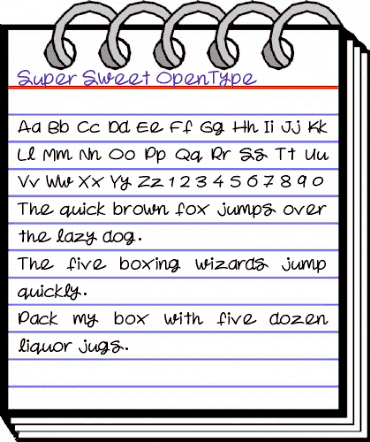 Super Sweet OpenType
Aa Bb Cc Dd Ee Ff Gg Hh Ii Jj Kk
Ll Mm Nn Oo Pp Qq Rr Ss Tt Uu
Vv Ww Xx Yy Zz 1 2 3 4 5 6 7 8 9 0
The quick brown fox jumps over
the lazy dog.
The five boxing wizards jump
quickly.
Pack my box with five dozen
liquor jugs.